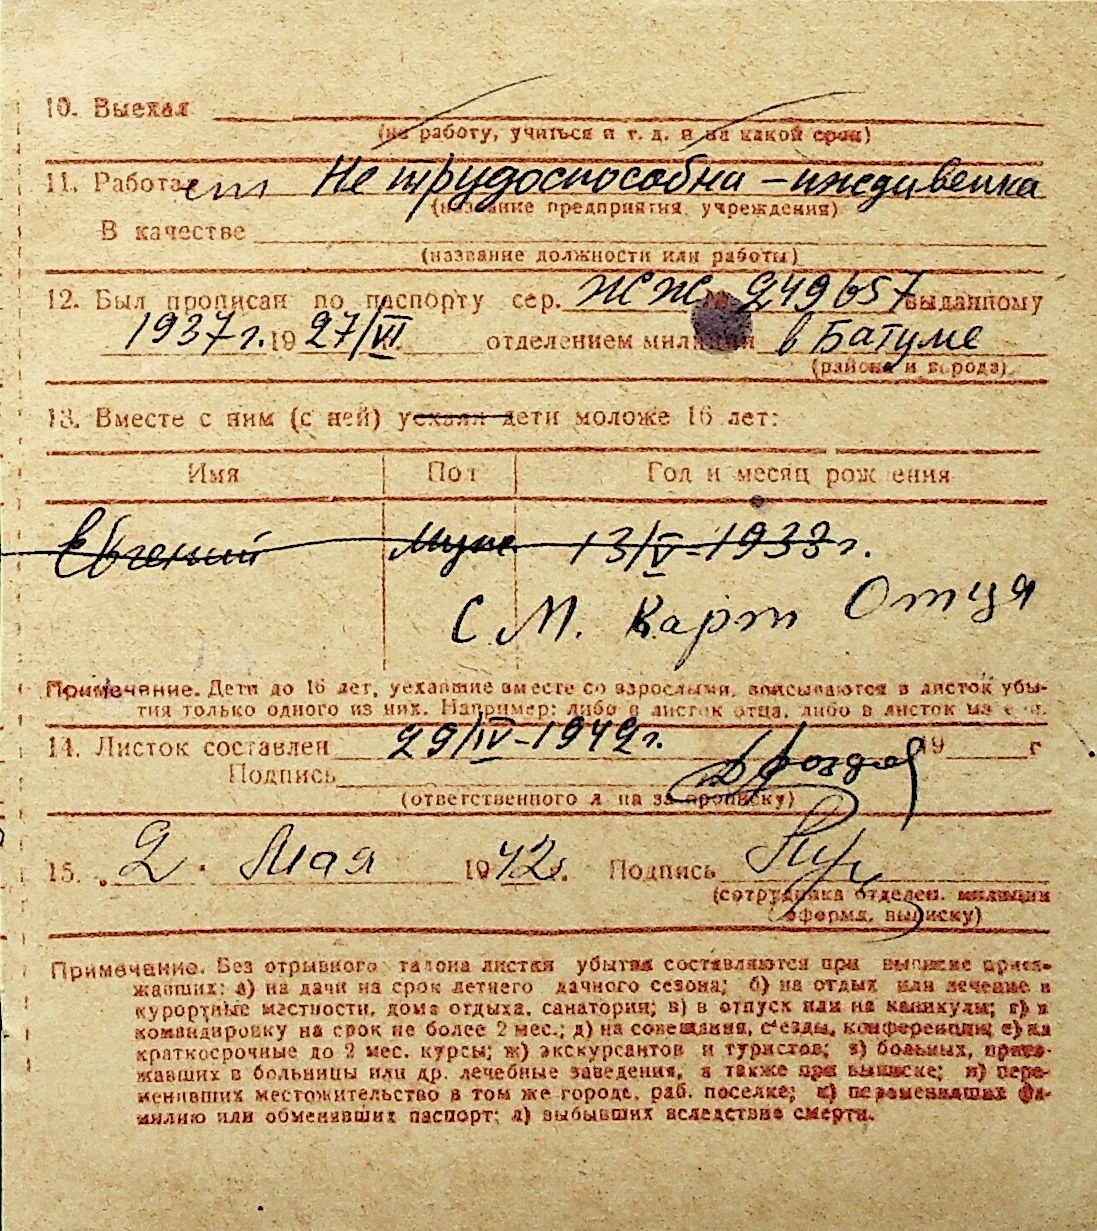 10. Выехал
(на работу, учиться и т. д. и на какой срок)
11. Работает Не трудоспособна – иждивенка
(название предприятия, учреждения)
В качестве
(название должности или работы)
12. Был прописан по паспорту сер. ЖЖ № 249657 выданному
1937 г. 19 27/VI отделением милиции в Батуме
(района и города)
13. Вместе с ним (с ней) уехали дети моложе 16 лет:
Имя Пол Год и месяц рождения
Евгений Муж. 13/V-1933 г.
С. М. Карт Отця
Примечание. Дети до 16 лет, уехавшие вместе со взрослыми, вписываются в листок убы-
тия только одного из них. Например: либо в листок отца, либо в листок матери.
14. Листок составлен 29/IV-1942 г. 19 г
Подпись
(ответственного лица за прописку)
15. 2. Мая 1942 г. Подпись
(сотрудника отделен. милиции
оформл. выписку)
Примечание. Без отрывного талона листки убытия составляются при выписке приез-
жавших: а) на дачи на срок летнего дачного сезона; б) на отдых или лечение в
курортные местности, дома отдыха, санатории; в) в отпуск или на каникулы; г) в
командировку на срок не более 2 мес.; д) на совещания, съезды, конференции; е) на
краткосрочные до 2 мес. курсы; ж) экскурсантов и туристов; з) больных, приез-
жавших в больницы или др. лечебные заведения, а также при выписке; и) пере-
менивших местожительство в том же городе, раб. поселке; к) переменивших фа-
милию или обменявших паспорт; л) выбывших вследствие смерти.